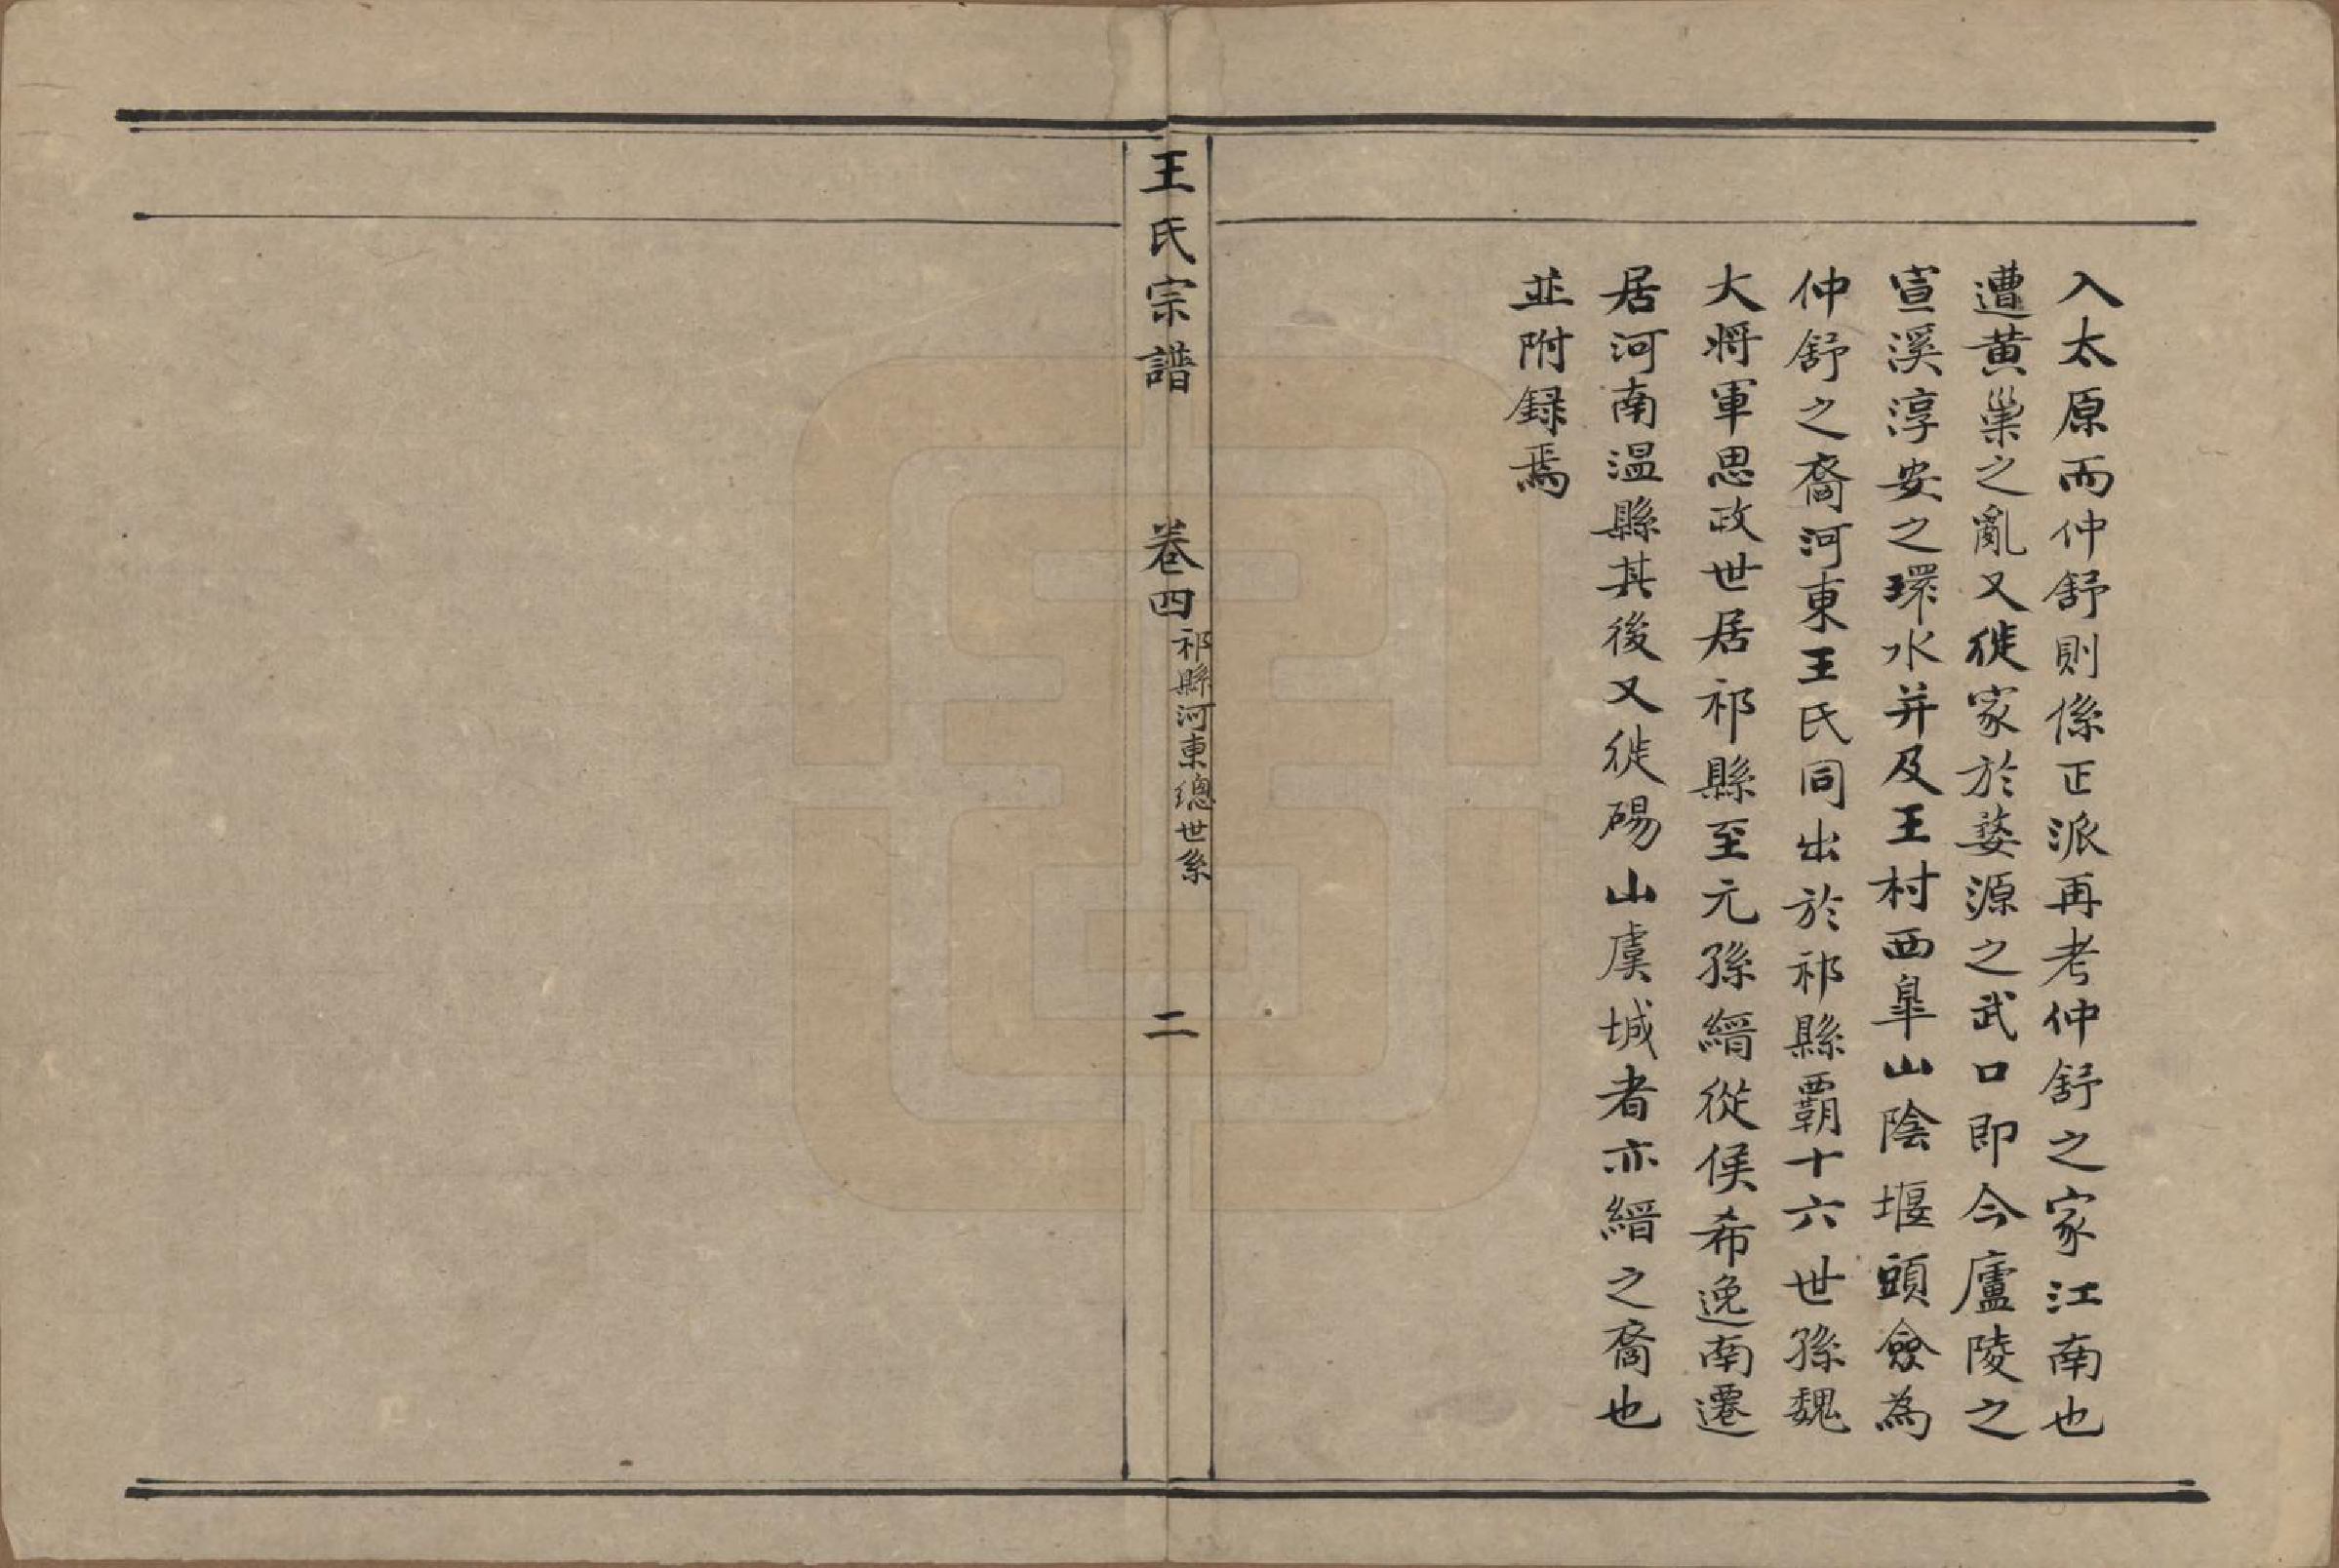 入太原而仲舒則係正派再考仲舒之家江南也
遭黄巢之亂又徙家於婺源之武口即今廬陵之
宣溪淳安之環水并及王村西臯山陰堰頭僉為
仲舒之裔河東王氏同出於祁縣覇十六世孫魏
大将軍思政世居祁縣至元孫縉從侯希逸南遷
居河南温縣其後又徙碭山虞城者亦縉之裔也
並附録焉
王氏宗譜 卷四 祁縣河東總世系 二